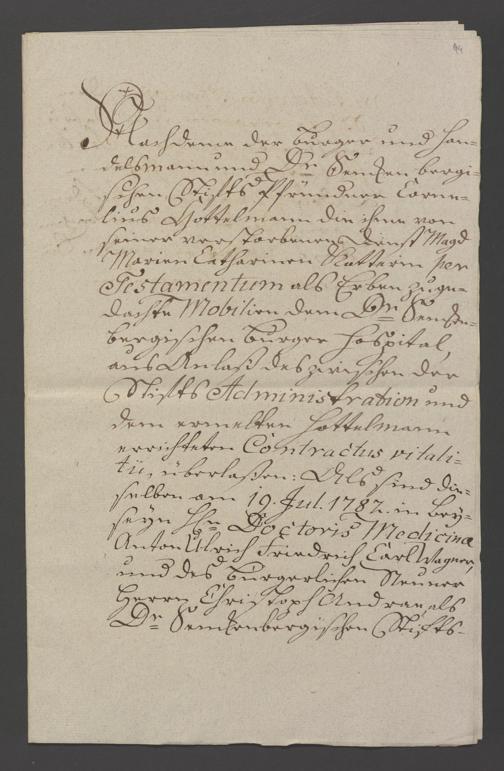 94
Nachdeme der Burger und Han-
delsmann und Dr Senckenbergi-
schen Stiffts Pfründner Corne-
lius Hottelmann die ihme von
seiner verstorbenen Dienst Magd
Marien Catharinen Katterin per
Testamentum als Erben zuge-
dachte Mobilien dem Dr Sencken-
bergischen Burger Hospital,
aus Anlaß des zwischen der
Stiffts Administration und
dem ermelten Hottelmann
errichteten Contractus vitali-
tii, überlaßen: Als sind die-
selben am 19. Jul. 1782. in Bey-
seyn Hn Doctoris Medicinæ
Anton Ulrich Friedrich Carl Wagner,
und des Burgerlichen Neuner
Herrn Christoph Andreae als
Dr Senckenbergischen Stiffts-